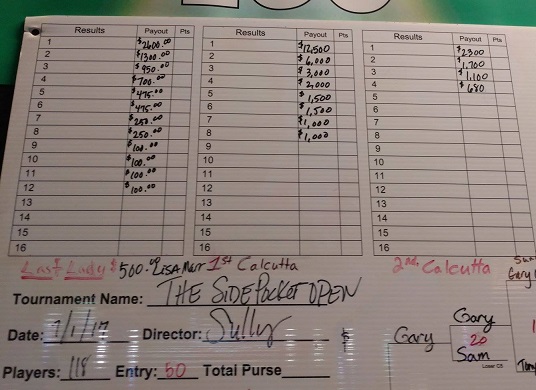 Results Payout Pts
1 $2600.00
2 $1300.00
3 $950.00
4 $700.00
5 $475.00
6 $475.00
7 $250.00
8 $250.00
9 $100.00
10 $100.00
11 $100.00
12 $100.00
13
14
15
16
Results Payout Pts
1 $12,500
2 $6,000
3 $3,000
4 $2,000
5 1,500
6 1,500
7 $1,000
8 $1,000
9
10
11
12
13
14
15
16
Results Payout Pts
1 $2300
2 $1,700
3 $1,100
4 $680
5
6
7
8
9
10
11
12
13
14
15
16
Last Lady $500.00 LISA Marr 1st Calcutta
2nd Calcutta
Gary
Tournament Name: THE SIDE POCKET OPEN
Date: 7/1/17 Director: Sully $
Gary
Gary
20
Sam
Players: 118 Entry: 50 Total Purse